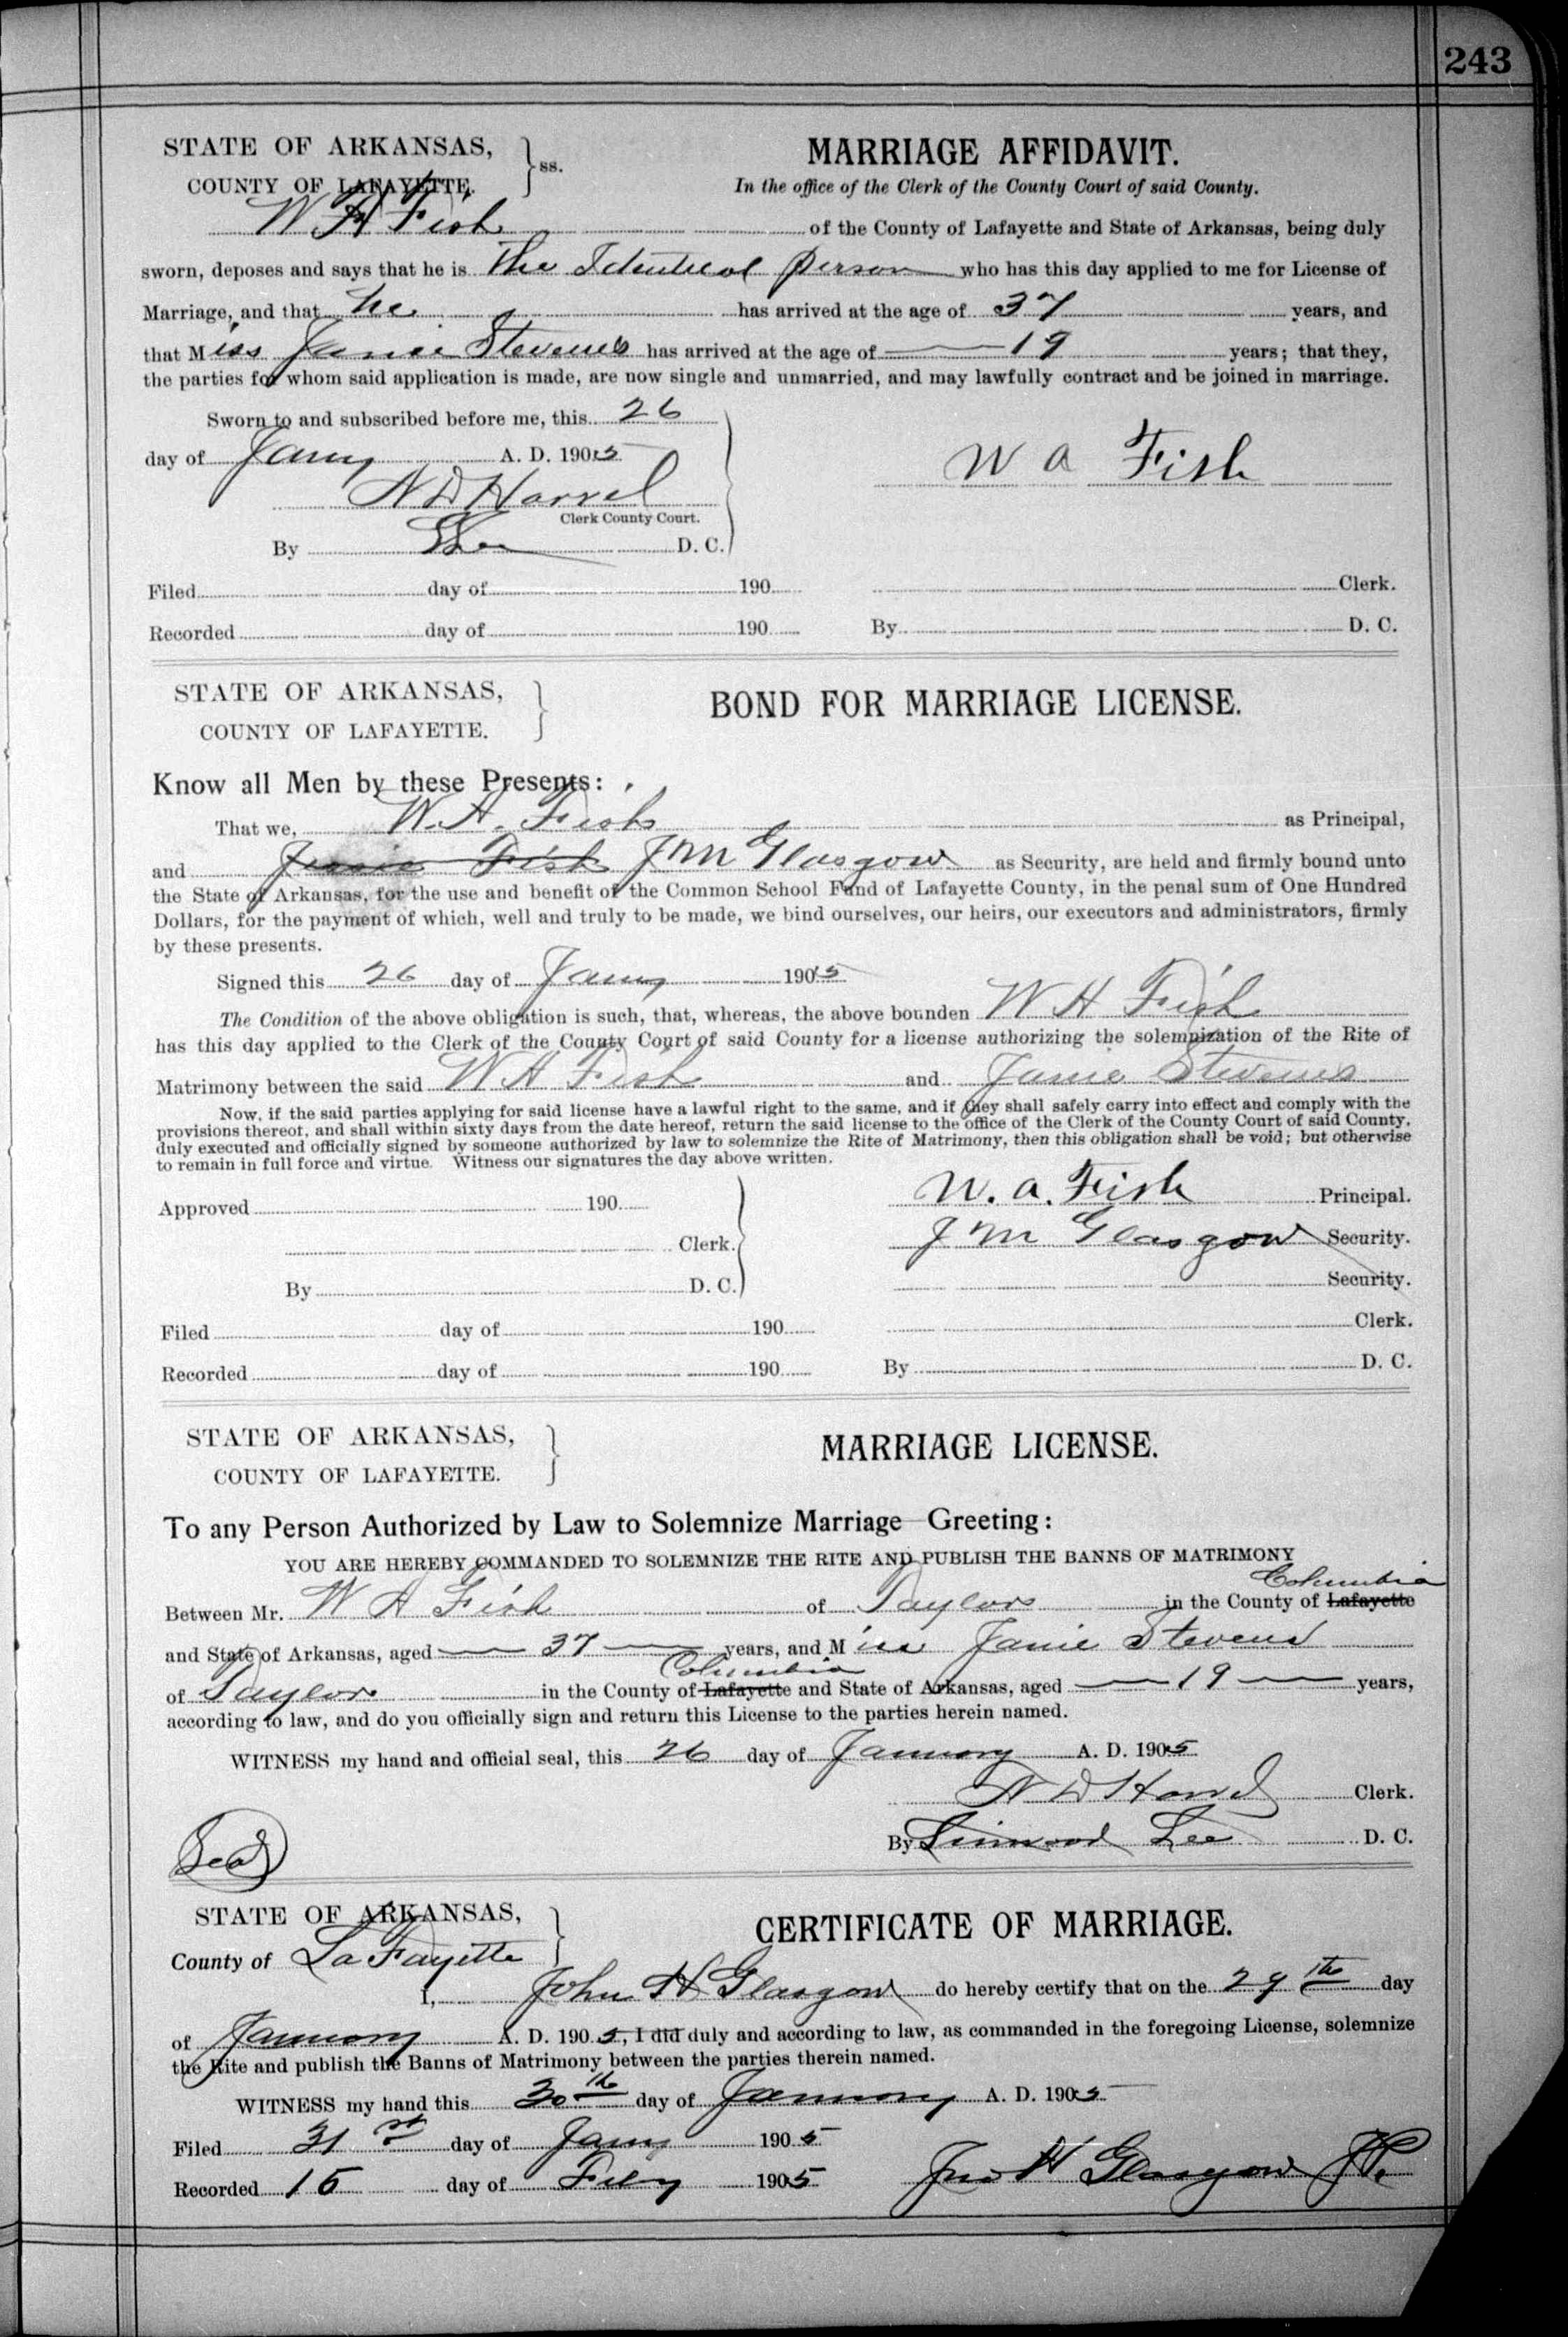 243
STATE OF ARKANSAS, } ss. MARRIAGE AFFIDAVIT.
COUNTY OF LAFAYETTE. In the office of the Clerk of the County Court of said County.
W A Fish of the County of Lafayette and State of Arkansas, being duly
sworn, deposes and says that he is the Identical person who has this day applied to me for License of
Marriage, and that he has arrived at the age of 37 years, and
that Miss Janie Stevens has arrived at the age of 19 years; that they,
the parties for whom said application is made, are now single and unmarried, and may lawfully contract and be joined in marriage.
Sworn to and subscribed before me, this 26
day of Jany A. D. 1905 W A Fish
N D Harrel
Clerk County Court.
By D. C.
Filed day of 190 Clerk.
Recorded day of 190 By D. C.
STATE OF ARKANSAS, } BOND FOR MARRIAGE LICENSE.
COUNTY OF LAFAYETTE.
Know all Men by these Presents:
That we, W. A. Fish as Principal,
and Jessie Fish J M Glasgow as Security, are held and firmly bound unto
the State of Arkansas, for the use and benefit of the Common School Fund of Lafayette County, in the penal sum of One Hundred
Dollars, for the payment of which, well and truly to be made, we bind ourselves, our heirs, our executors and administrators, firmly
by these presents.
Signed this 26 day of Jany 1905
The Condition of the above obligation is such, that, whereas, the above bounden W A Fish
has this day applied to the Clerk of the County Court of said County for a license authorizing the solemnization of the Rite of
Matrimony between the said W A Fish and Janie Stevens
Now, if the said parties applying for said license have a lawful right to the same, and if they shall safely carry into effect and comply with the
provisions thereof, and shall within sixty days from the date hereof, return the said license to the office of the Clerk of the County Court of said County,
duly executed and officially signed by someone authorized by law to solemnize the Rite of Matrimony, then this obligation shall be void; but otherwise
to remain in full force and virtue. Witness our signatures the day above written.
Approved 190 W. A. Fish Principal.
Clerk. J M Glasgow Security.
By D. C. Security.
Filed day of 190 Clerk.
Recorded day of 190 By D. C.
STATE OF ARKANSAS, } MARRIAGE LICENSE.
COUNTY OF LAFAYETTE.
To any Person Authorized by Law to Solemnize Marriage—Greeting:
YOU ARE HEREBY COMMANDED TO SOLEMNIZE THE RITE AND PUBLISH THE BANNS OF MATRIMONY
Columbia
Between Mr. W A Fish of Taylor in the County of Lafayette
and State of Arkansas, aged 37 years, and Miss Janie Stevens
Columbia
of Taylor in the County of Lafayette and State of Arkansas, aged 19 years,
according to law, and do you officially sign and return this License to the parties herein named.
WITNESS my hand and official seal, this 26 day of January A. D. 1905
N D Harrel Clerk.
Seal By Linwood Lee D. C.
STATE OF ARKANSAS, } CERTIFICATE OF MARRIAGE.
County of LaFayette
I, John H Glasgow do hereby certify that on the 29th day
of January A. D. 1905, I did duly and according to law, as commanded in the foregoing License, solemnize
the Rite and publish the Banns of Matrimony between the parties therein named.
WITNESS my hand this 30th day of January A. D. 1905
Filed 31st day of Jany 1905
Recorded 15 day of Feby 1905 Jno H Glasgow J P.